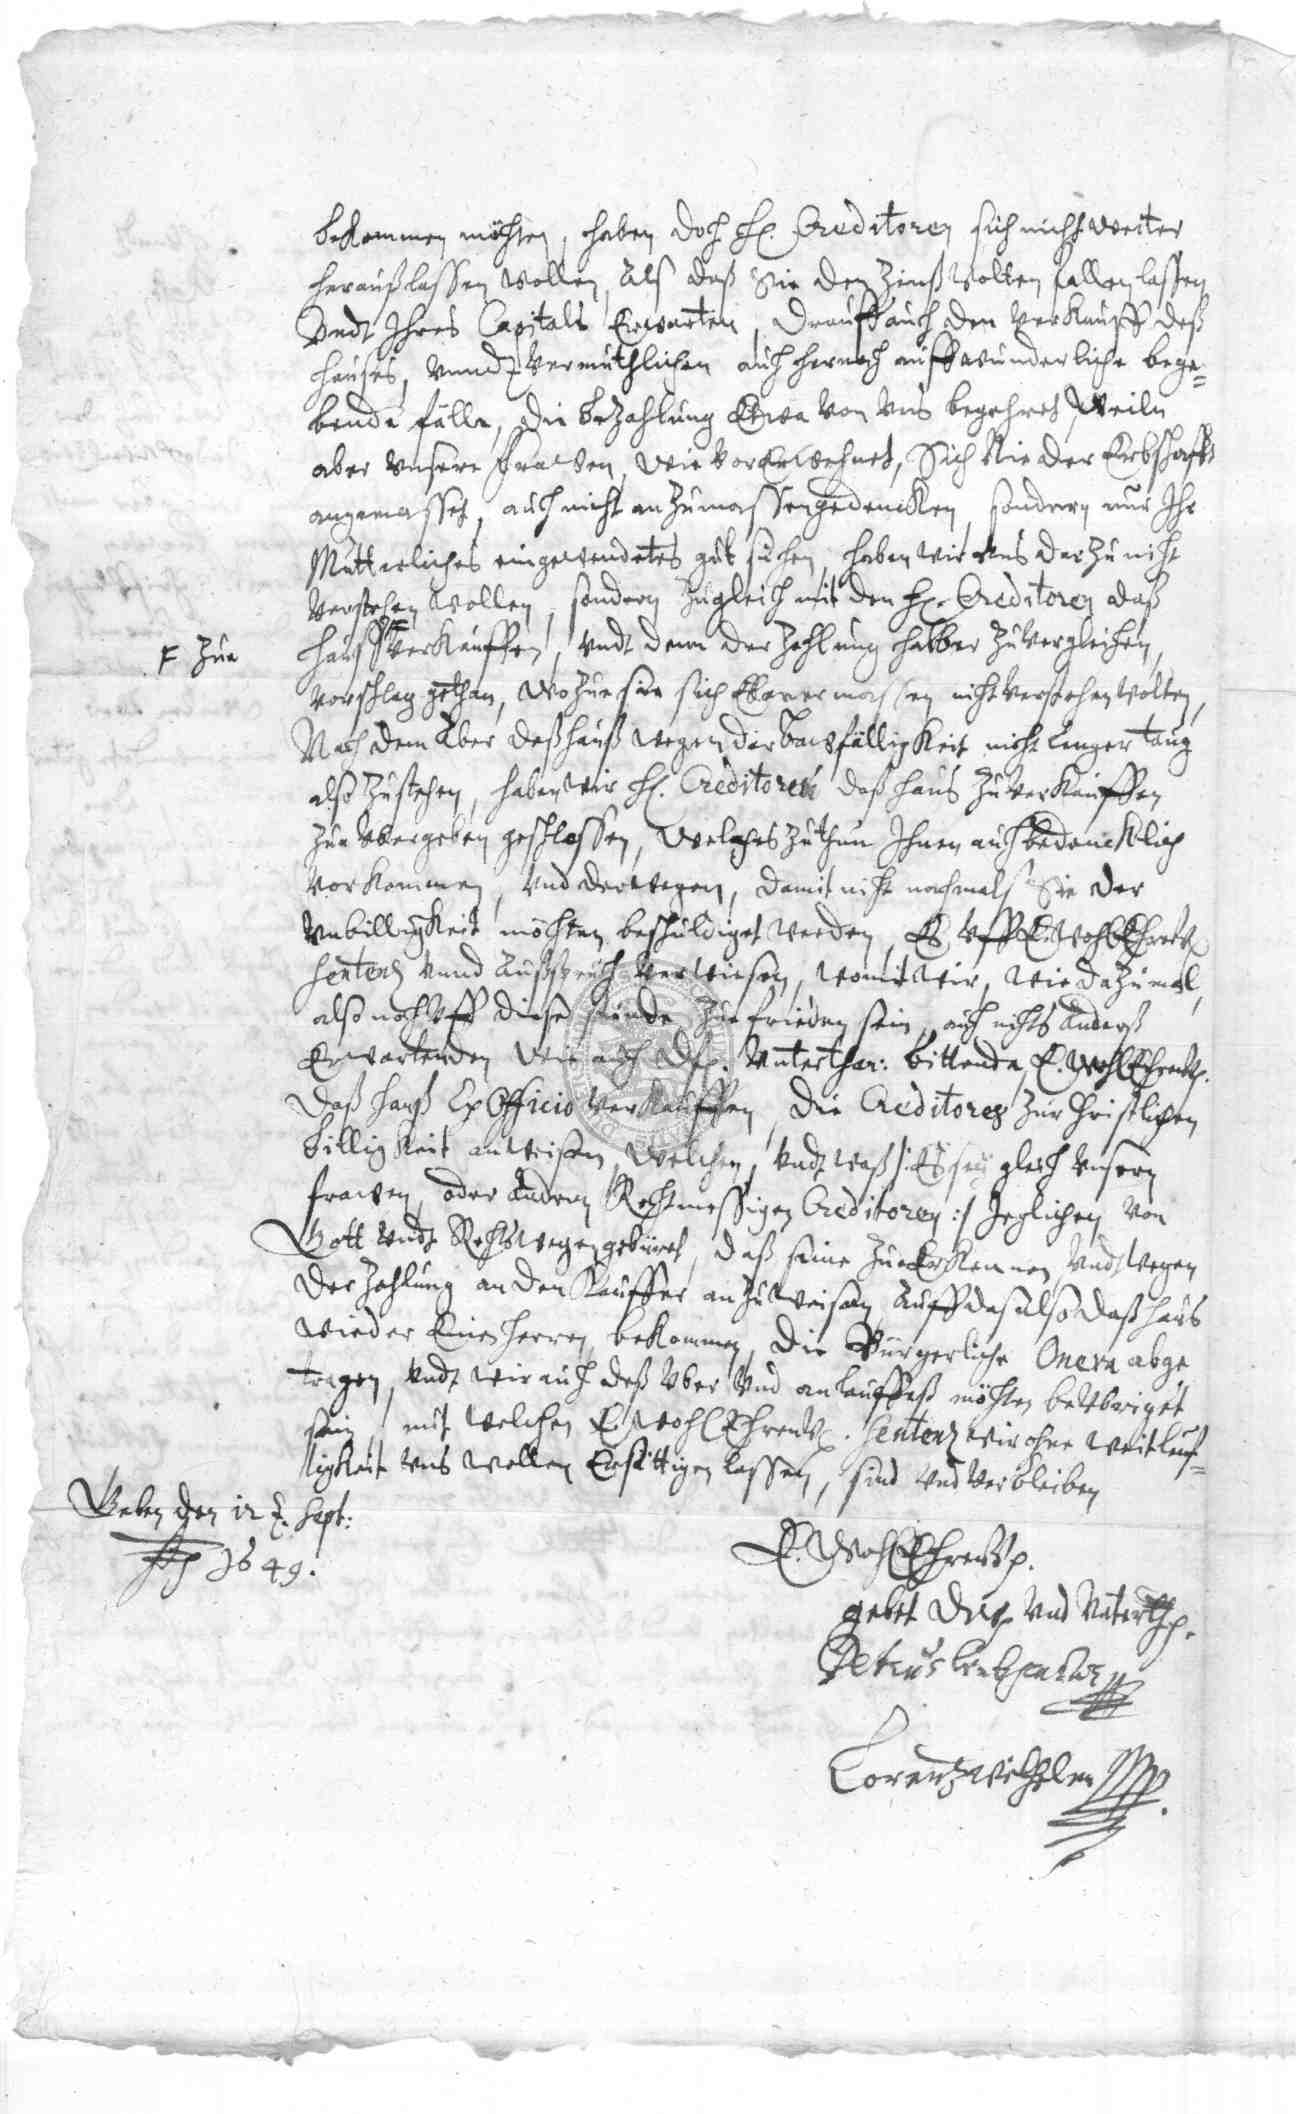 bekommen möchten, haben doch H. Creditoren sich nicht weiter
heraußlassen wollen, Alß daß Sie den Zinß wolten fallen lassen
Vndt Ihres Capitals Erwarten, drauff auch den Verkauff deß
Hauses, vnndt vermuthlichen auch hernach auff wunderliche bege=
bende fälle, die bezahlung Etwa von vns begehret, Weiln
aber vnsere Frawen, wie vorerwehnet, Sich Nie der Erbschafft
angemasset, auch nicht anzumassen gedencken, sondern nur Ihr
Mütterliches eingewendetes gut suchen, haben wir vns darzu nicht
verstehen wollen, sondern zugleich mit den H. Creditoren daß
Hauß F verkauffen, vndt denn der Zahlung halber zu vergleichen,
F Zue
vorschlag gethan, wozue sie sich Ebener massen nicht verstehen wolten,
Nach dem Aber daß hauß wegen der bawfälligkeit nicht lenger taug
also zustehen, haben wir H. Creditoren daß hauß zu verkauffen
zue vbergeben geschlossen, welches zuthun Ihnen auch bedencklich
vorkommen, vnd derwegen, damit nicht nachmalß Sie der
Vnbilligkeit möchten beschuldiget werden, Es vff E. Wohl Ehrenv.
Sententz vnnd Außspruch verwiesen, womit wir, wie dazumal,
also noch vff diese stunde zue frieden sein, auch nichts Anderß
Erwartenden wie auch Dh. Vnterthen: bittende, E. Wohl Ehrenv.
Daß hauß Ex Officio verkauffen, die Creditores zur Christlichen
billigkeit anweisen, welchen, vndt waß /: Es sey gleich vnsern
frawen, oder Andern Rechtmessigen Creditoren :/ Jeglichen von
Gott vndt Rechts wegen gebüret, daß seine zue Erkennen, vndt wegen
der Zahlung an den Kauffer anzuweisen, Auff das also daß hauß
wieder Einen Herren bekommen, die Bürgerliche Onera abge
tragen, vndt wir auch deß Vber vnd anlauffeß möchten bevbriget
sein, mit welchen E. Wohl Ehrenv. Sententz wir ohne weitleuf=
tigkeit vns wollen Ersättigen lassen, sind vnd verbleiben
Geben den 12 7. Sept:
Ao 1649.
E. Wohl Ehrenv.
gebet Dh. vnd Vnterth.
Petrus
Lorentz Wilhelm